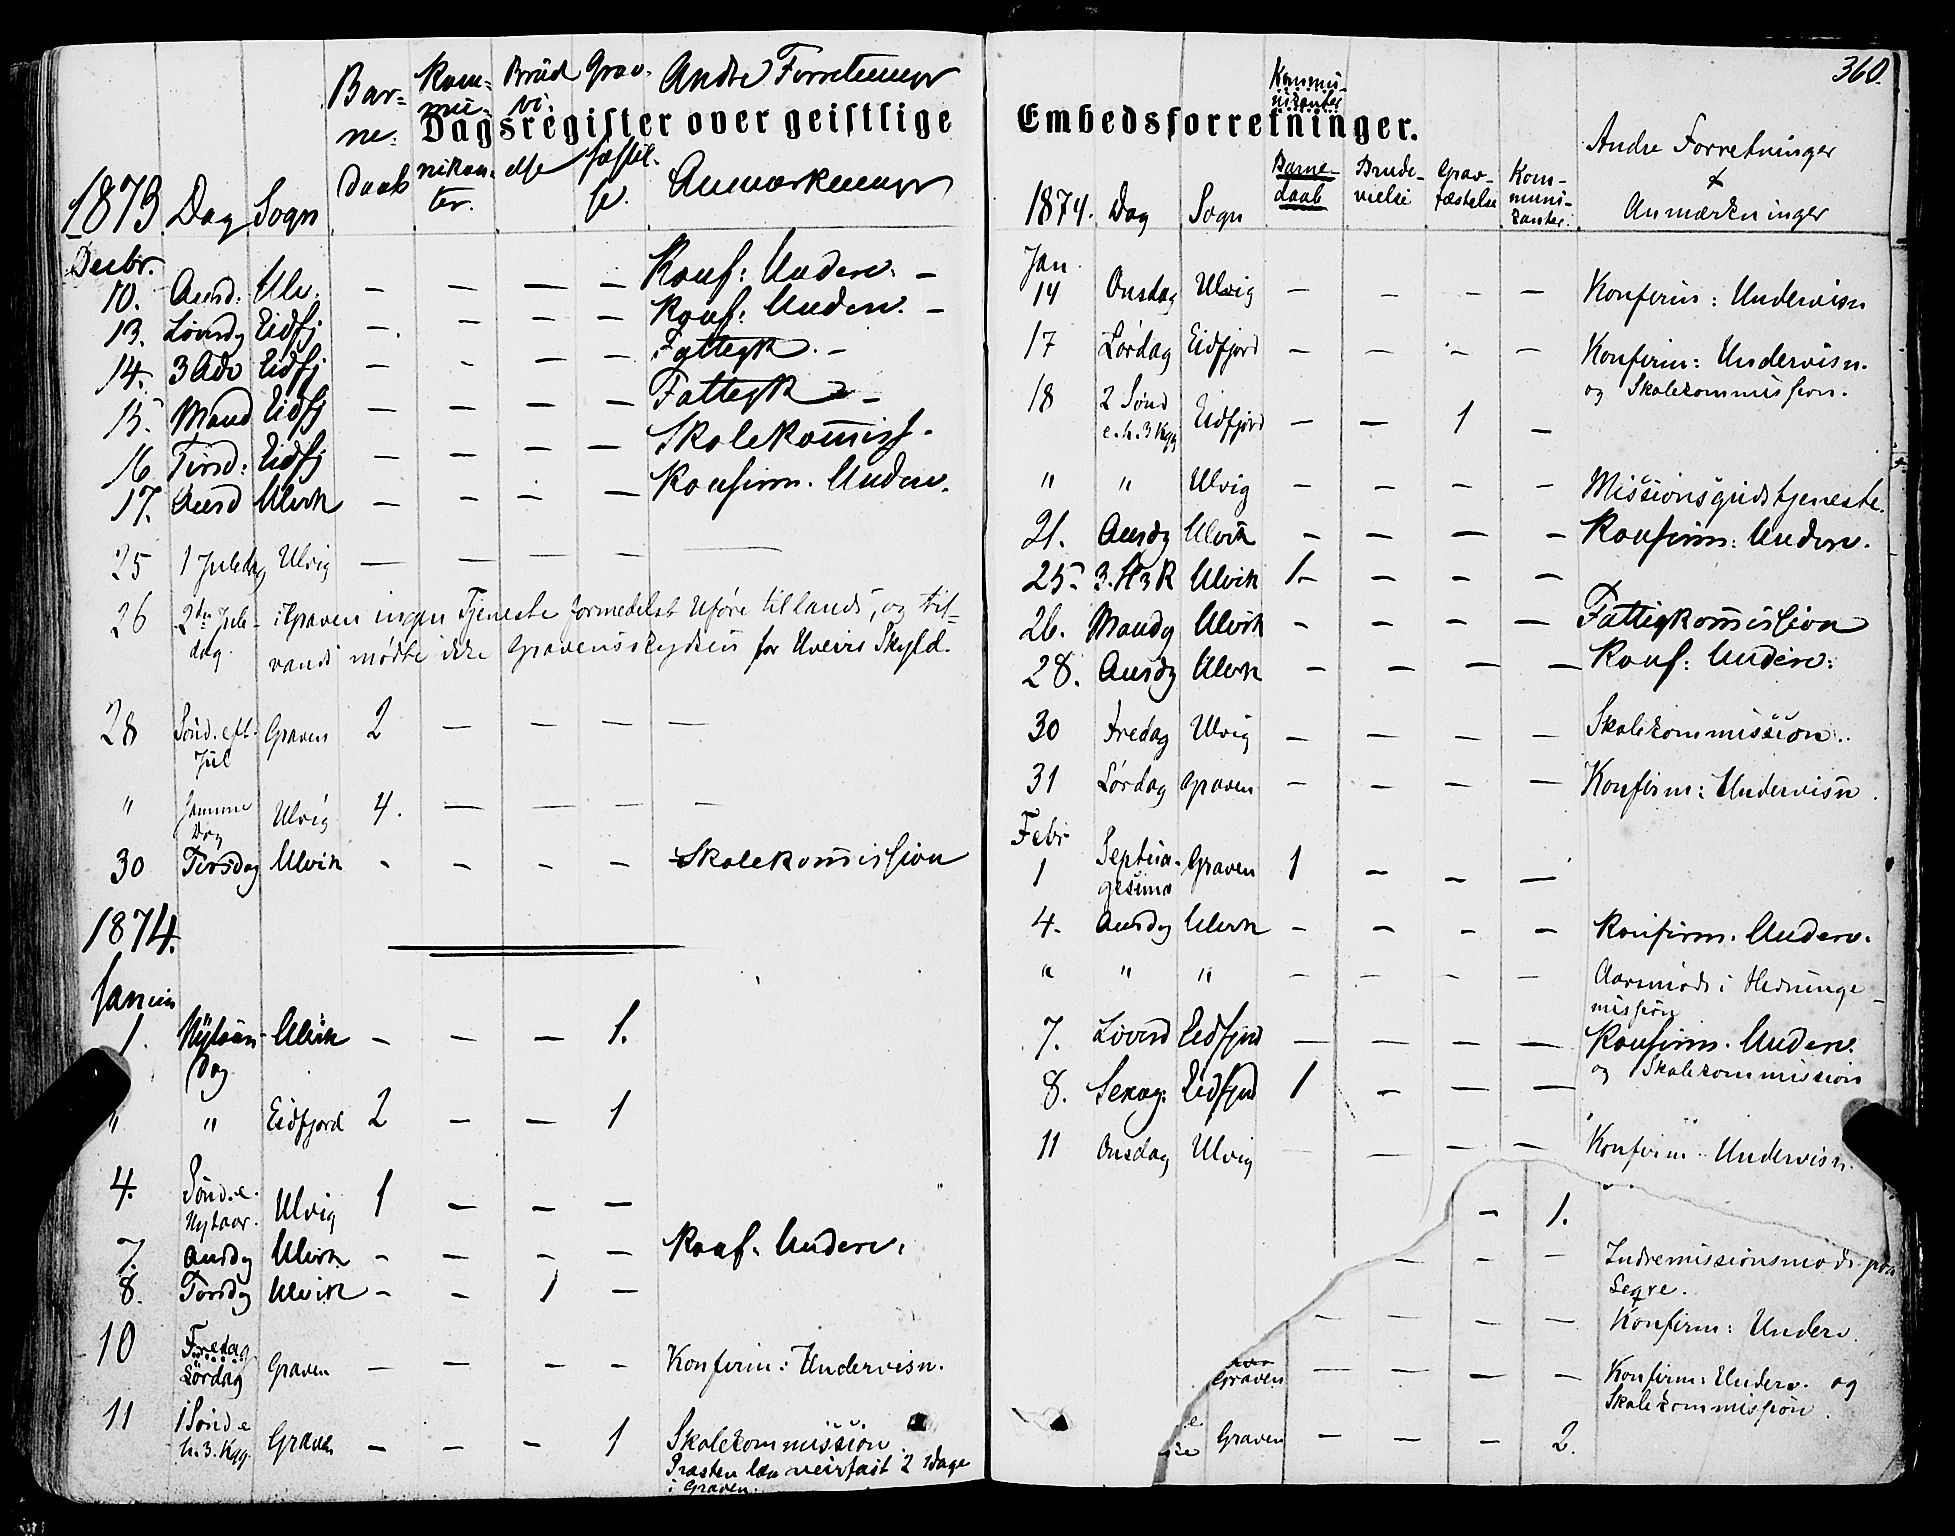 Dagsregister over geistlige
Andre Forretninger
Anmærkninger
1873 Dag Sogn Barnedaab Kommunikanter Brudvielse Gravfæstelse
Decbr.
10. Onsd: Ulv. — — — — Konf: Underv. —
13. Løverdg Eidfj — — — — Konf: Underv. —
14. 3 Adv Eidfj — — — — Fattigk. —
15. Mand Eidfj — — — — Fattigk —
16. Tirsd: Eidfj — — — — Skolekommiss.
17. Onsd Ulvik — — — — Konfirm. Underv.
25 1 Juledag Ulvig — — — — —
26 2den Jule- i Graven ingen Tjeneste formedelst Uføre tillands, og til-
dag. vands mødte ikke Gravensskydsen for Uveirs Skyld.
28 Sønd. eft. Graven 2 — — — —
Jul
" Samme Ulvig 4. — — — —
Dag
30 Tirsdag Ulvik - - - - Skolekommission
1874.
Januar
1. Nytaars- Ulvik - - - 1.
dag
" " Eidfjord 2 — — 1
4. Sønd. e. Ulvig 1 — — —
Nytaar.
7. Onsdg Ulvik - - - - Konf. Underv.
8. Torsdg Ulvik - - 1 -
10 Fredag
Lördag Graven — — — — Konfirm: Undervisn.
11 1 Sönd e Graven — — — 1 Skolekommission
h. 3. Kgg. Præsten laa veirfast 2 Dage
i Graven.
360.
Embedsforretninger.
Andre Forretninger
+
Anmærkninger
Kommunikanter
1874. Dag Sogn Barnedaab Brudevielse Gravfæstelse Kommunikanter.
Jan.
14 Onsdag Ulvig — — — — Konfirm: Undervisn
17 Lørdag Eidfjord — — — — Konfirm: Undervisn.
og Skolekommission.
18 2 Sönd Eidfjord — — 1 —
e. h. 3 Kgg
" " Ulvig — — — — Missionsgudstjeneste.
21. Onsdg Ulvik — — — — Konfirm: Underv.
25. 3. H3K Ulvik 1 — — —
26. Mandg Ulvik — — — — Fattigkommission
28. Onsdg Ulvik — — — — Konf: Underv:
30 Fredag Ulvig — — — — Skolekommission.
31 Lördag Graven — — — — Konfirm: Undervisn.
Febr
1 Septua- Graven 1 — — —
gesima
4. Onsdg Ulvik — — — — Konfirm. Underv.
" " " — — — — Aarsmöde i Hedninge-
mission
7. Löverd Eidfjord — — — — Konfirm. Underv.
og Skolekommission
8. Sexag: Eidfjord 1 — — —
11 Onsdag Ulvig — — — — Konfirm. Undervisn.
— 1.
— — — Indremissionsmöde paa
— — — — Konfirm: Underv.
Graven — — — — Konfirm: Underv. og
Skolekommission.
Graven — — — 2.